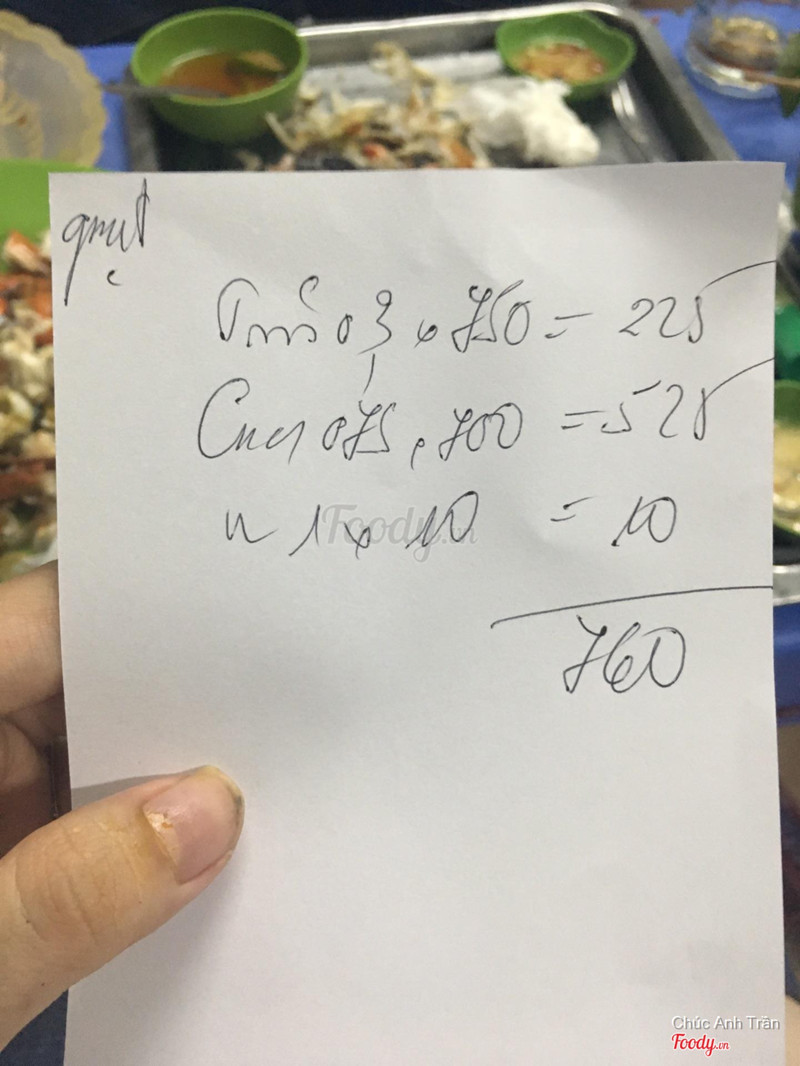 03 x 750 = 225
Cua 075 . 700 = 525
n 1 x 10 = 10
760
Foody.vn
Chúc Anh Trần
Foody.vn